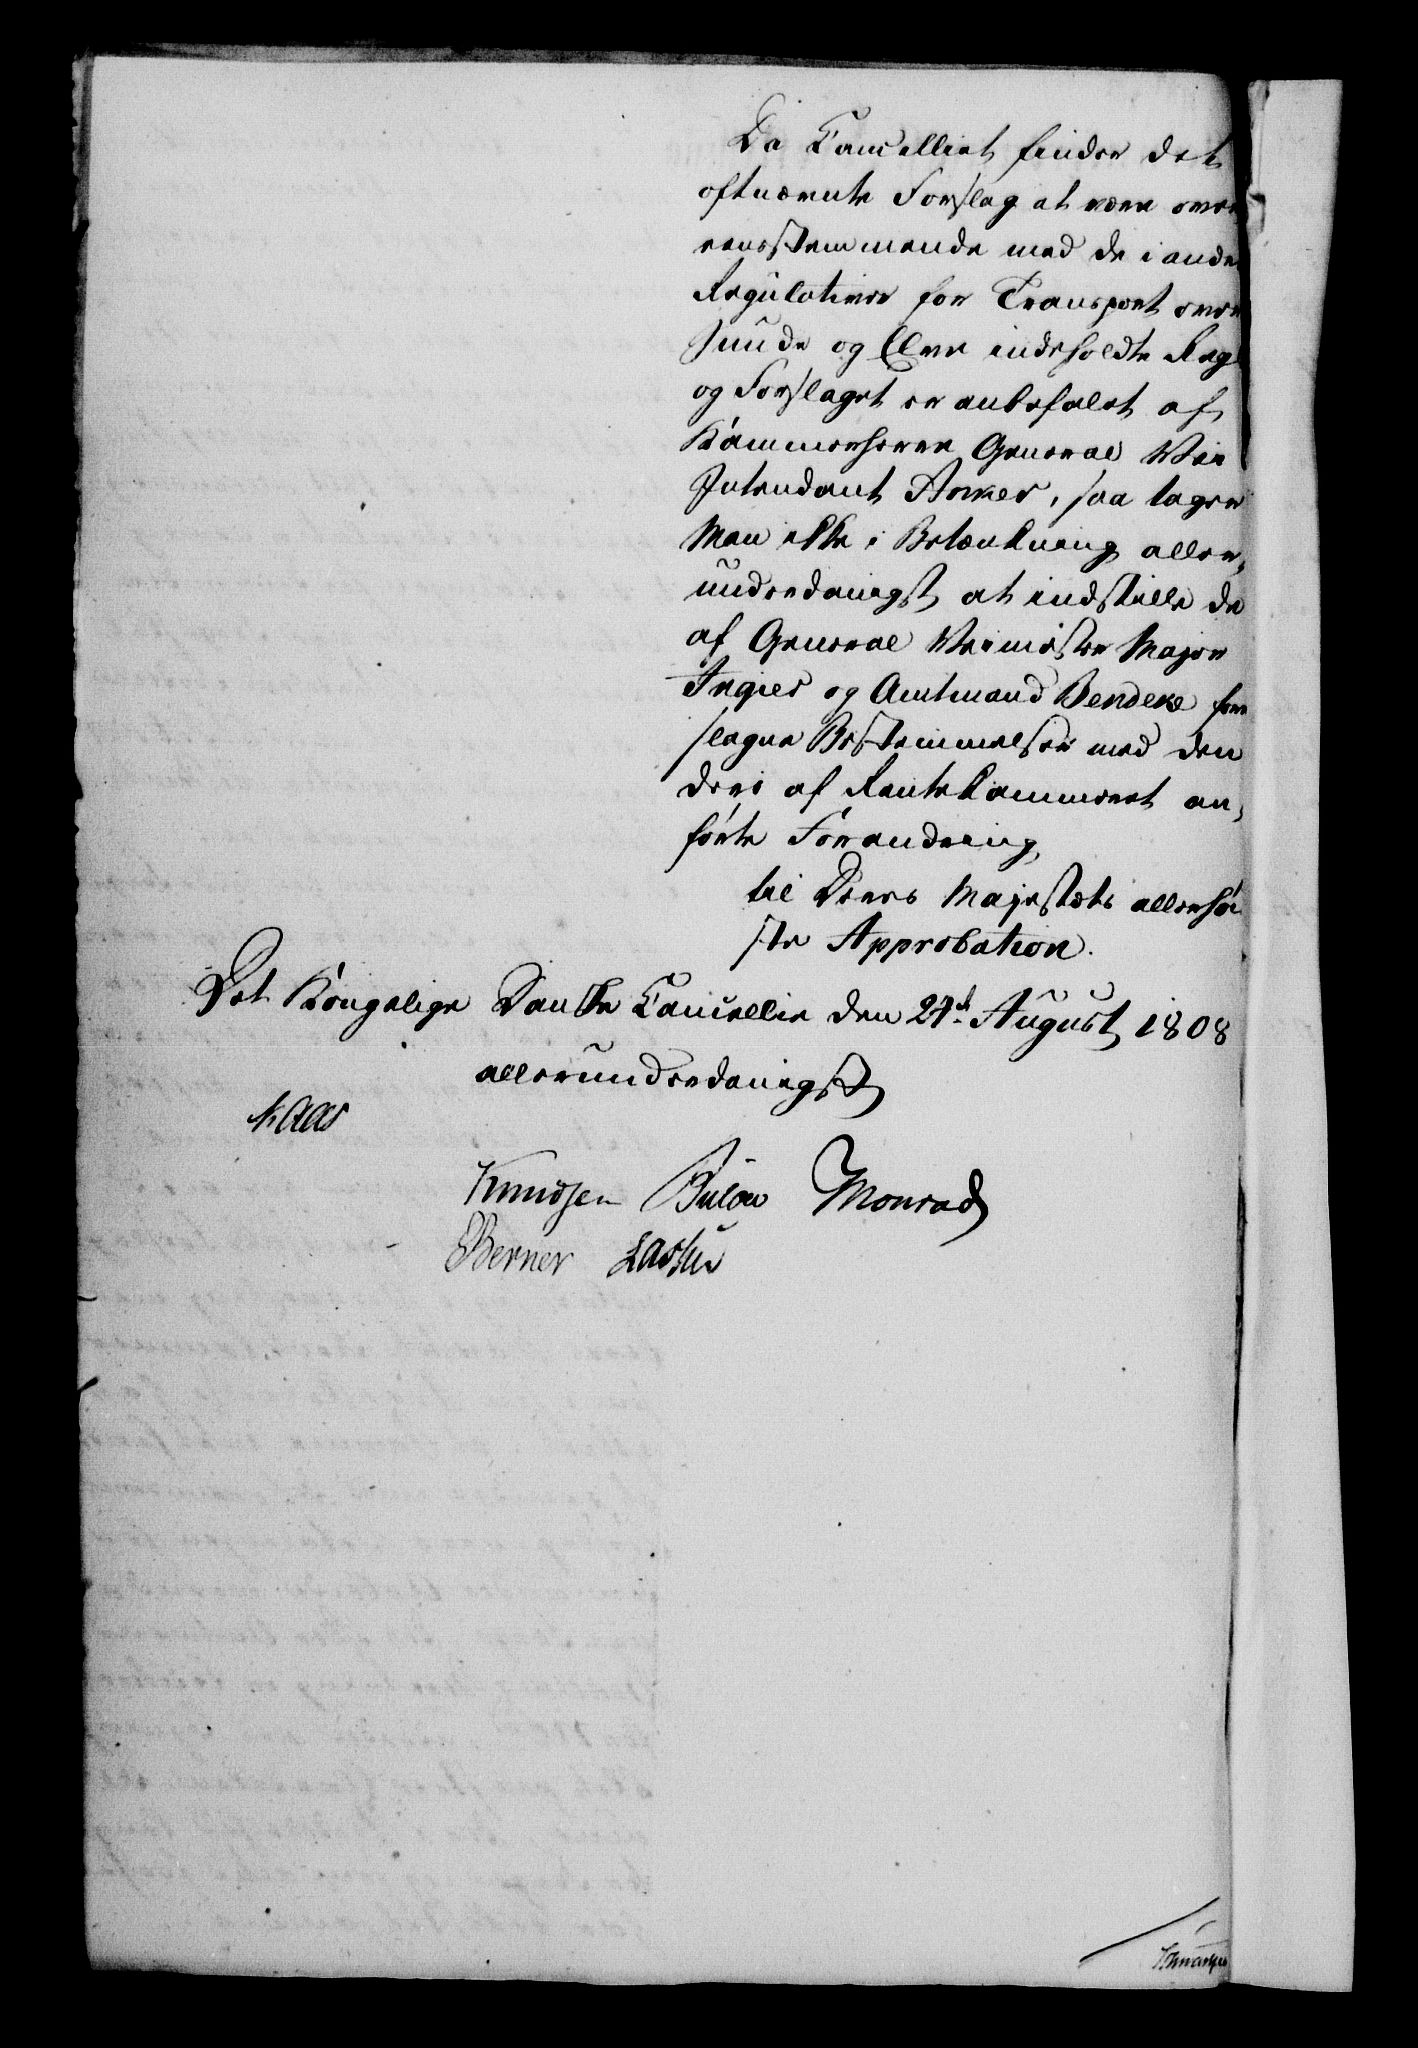 Da Cancelliet finder det
oftnævnte Forslag at være over
eensstemmende med de i ande
Regulativer for Transport over
Sunde og Elve indeholdte Reg
og Forslaget er anbefalet af
Kammerherre General Vei
Intendant Anker, saa tager
Man ikke i Betænkning aller¬
underdanigst at indstille de
af General Veimester Major
Ingier og Amtmand Bendeke fore
slagne Bestemmelser med den
deri af Rentekammeret an¬
førte Forandring
til Deres Majestæts allerhøi
ste Approbation.
Det Kongelige Danske Cancellie den 24d August 1808
allerunderdanigst
Kaas
Knudsen Bülow Monrad
Berner Lassen